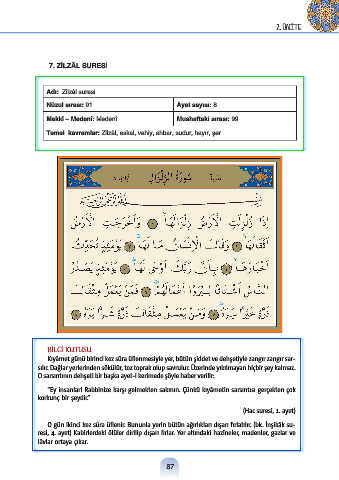 2. ÜNİTE
7. ZİLZÂL SURESİ
Adı: Zilzâl suresi
Nüzul sırası: 91
Ayet sayısı: 8
Mekkî – Medenî: Medenî
Mushaftaki sırası: 99
Temel kavramlar: Zilzâl, eskal, vahiy, ahbar, sudur, hayır, şer
سُورَةُ الزِّلْزَالِ
إِذَا زُلْزِلَتِ الْأَرْضُ زِلْزَالَهَا وَأَخْرَجَتِ الْأَرْضُ
أَثْقَالَهَا وَقَالَ الْإِنْسَانُ مَا لَهَا يَوْمَئِذٍ تُحَدِّثُ
أَخْبَارَهَا بِأَنَّ رَبَّكَ أَوْحَى لَهَا يَوْمَئِذٍ يَصْدُرُ
النَّاسُ أَشْتَاتًا لِيُرَوْا أَعْمَالَهُمْ فَمَنْ يَعْمَلْ مِثْقَالَ
ذَرَّةٍ خَيْرًا يَرَهُ وَمَنْ يَعْمَلْ مِثْقَالَ ذَرَّةٍ شَرًّا يَرَهُ
BİLGİ KUTUSU
Kıyamet günü birinci kez sûra üflenmesiyle yer, bütün şiddet ve dehşetiyle zangır zangır sar-
sılır. Dağlar yerlerinden sökülür, toz toprak olup savrulur. Üzerinde yıkılmayan hiçbir şey kalmaz.
O sarsıntının dehşeti bir başka ayet-i kerimede şöyle haber verilir:
"Ey insanlar! Rabbinize karşı gelmekten sakının. Çünkü kıyametin sarsıntısı gerçekten çok
korkunç bir şeydir."
(Hac suresi, 1. ayet)
O gün ikinci kez sûra üflenir. Bununla yerin bütün ağırlıkları dışarı fırlatılır. (bk. İnşikâk su-
resi, 4. ayet) Kabirlerdeki ölüler dirilip dışarı fırlar. Yer altındaki hazineler, madenler, gazlar ve
lâvlar ortaya çıkar.
87